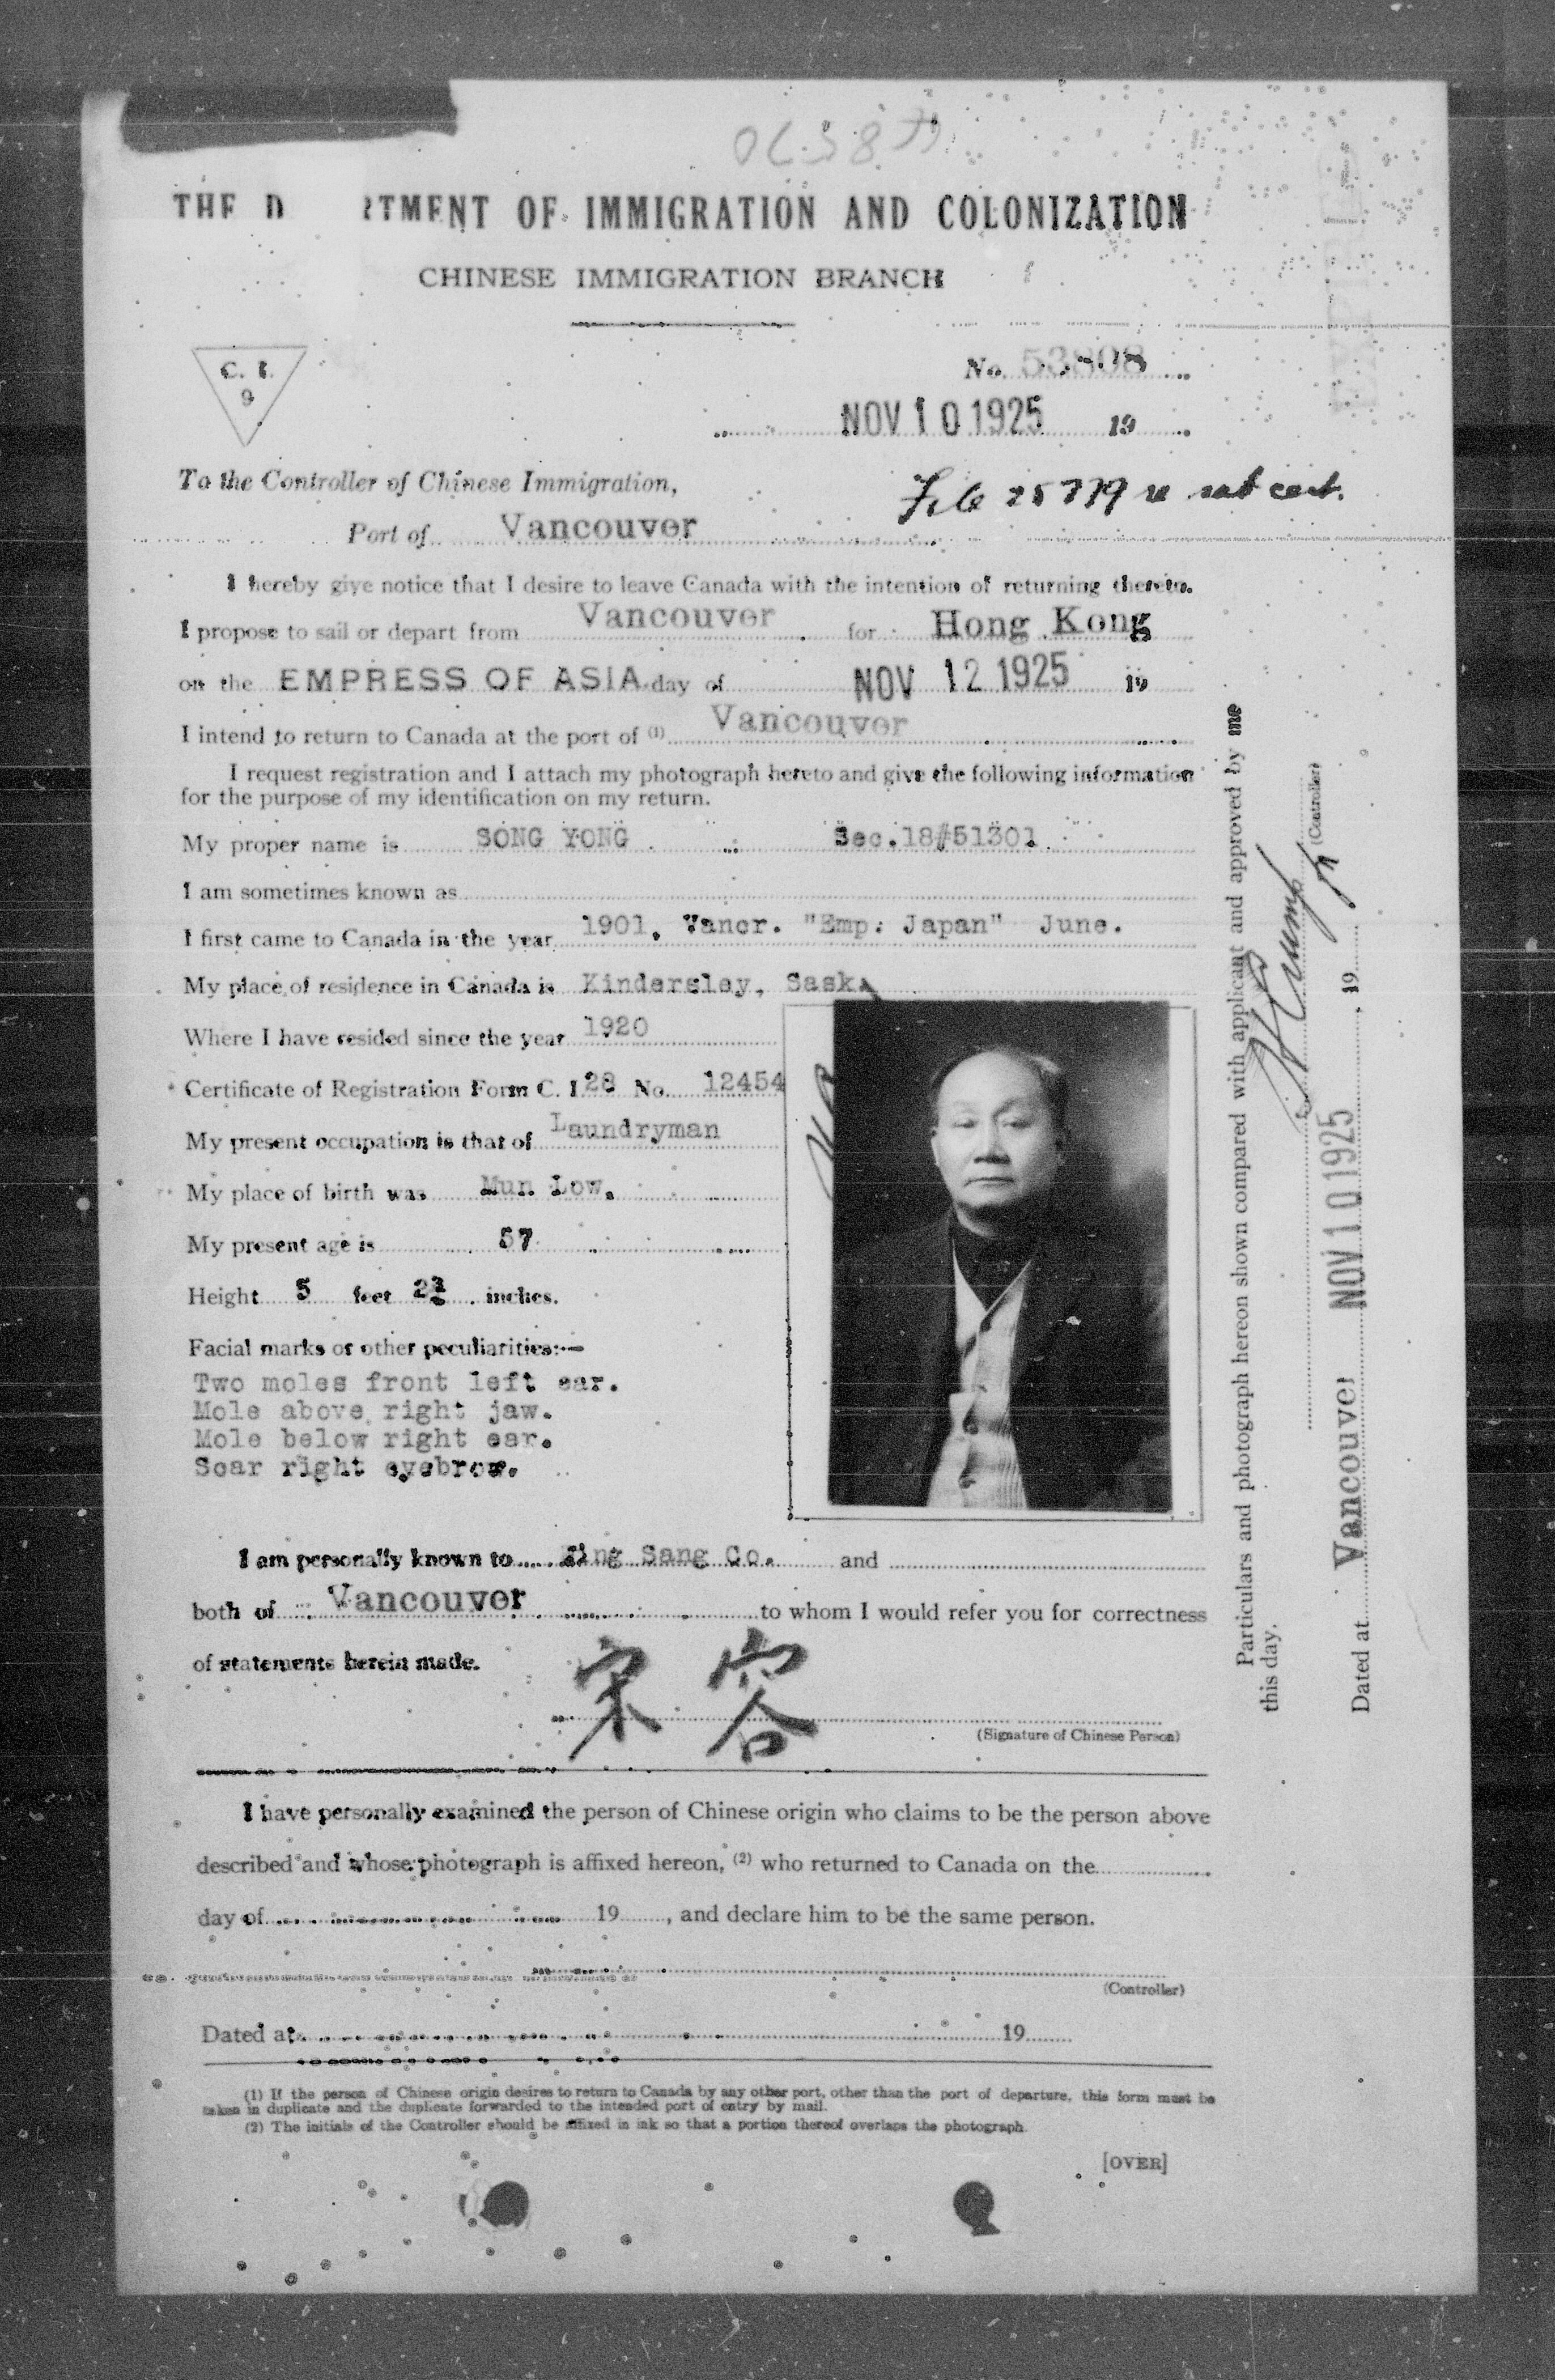 THE D RTMENT OF IMMIGRATION AND COLONIZATION
CHINESE IMMIGRATION BRANCH
C. I.
9
No. 53808
NOV 10 1925 19
To the Controller of Chinese Immigration,
File 25779 re cert.
Port of Vancouver
I hereby give notice that I desire to leave Canada with the intention of returning thereto.
I propose to sail or depart from Vancouver for Hong Kong
on the EMPRESS OF ASIA day of NOV 12 1925 19
I intend to return to Canada at the port of (1) Vancouver
I request registration and I attach my photograph hereto and give the following information
for the purpose of my identification on my return.
My proper name is SONG YONG Sec.18#51301.
I am sometimes known as
I first came to Canada in the year 1901, Vancr. "Emp: Japan" June.
My place of residence in Canada is Kindersley, Sask.
Where I have resided since the year 1920
Certificate of Registration Form C. I. 28 No. 12454
My present occupation is that of Laundryman
My place of birth was Mun Low.
My present age is 57
Height 5 feet 2¾ inches.
Facial marks or other peculiarities:—
Two moles front left ear.
Mole above right jaw.
Mole below right ear.
Scar right eyebrow.
I am personally known to Sang Co. and
both of Vancouver to whom I would refer you for correctness
of statements herein made.
宋 容
(Signature of Chinese Person)
I have personally examined the person of Chinese origin who claims to be the person above
described and whose photograph is affixed hereon, (2) who returned to Canada on the
day of 19 , and declare him to be the same person.
(Controller)
Dated at 19
(1) If the person of Chinese origin desires to return to Canada by any other port, other than the port of departure, this form must be
taken in duplicate and the duplicate forwarded to the intended port of entry by mail.
(2) The initials of the Controller should be affixed in ink so that a portion thereof overlaps the photograph.
[OVER]
Particulars and photograph hereon shown compared with applicant and approved by me
this day.
(Controller)
Dated at Vancouver NOV 10 1925 , 19